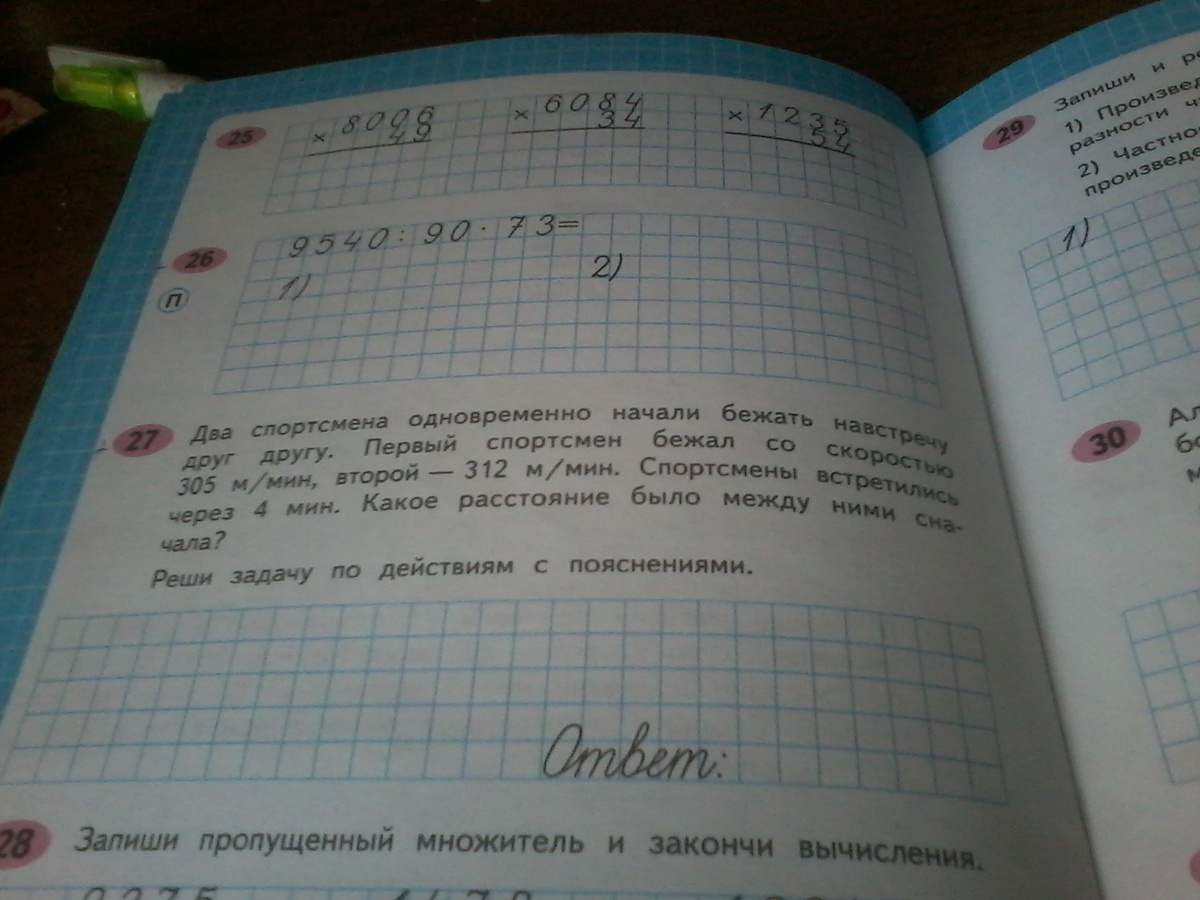 25
× 8006
49
× 6084
34
× 1235
54
26
9540 : 90 · 73 =
П
1)
2)
27
Два спортсмена одновременно начали бежать навстречу
друг другу. Первый спортсмен бежал со скоростью
305 м/мин, второй — 312 м/мин. Спортсмены встретились
через 4 мин. Какое расстояние было между ними сна-
чала?
Реши задачу по действиям с пояснениями.
Ответ:
28
Запиши пропущенный множитель и закончи вычисления.
29
Запиши и
1) Произвед
разности ч
2) Частно
произведе
1)
30